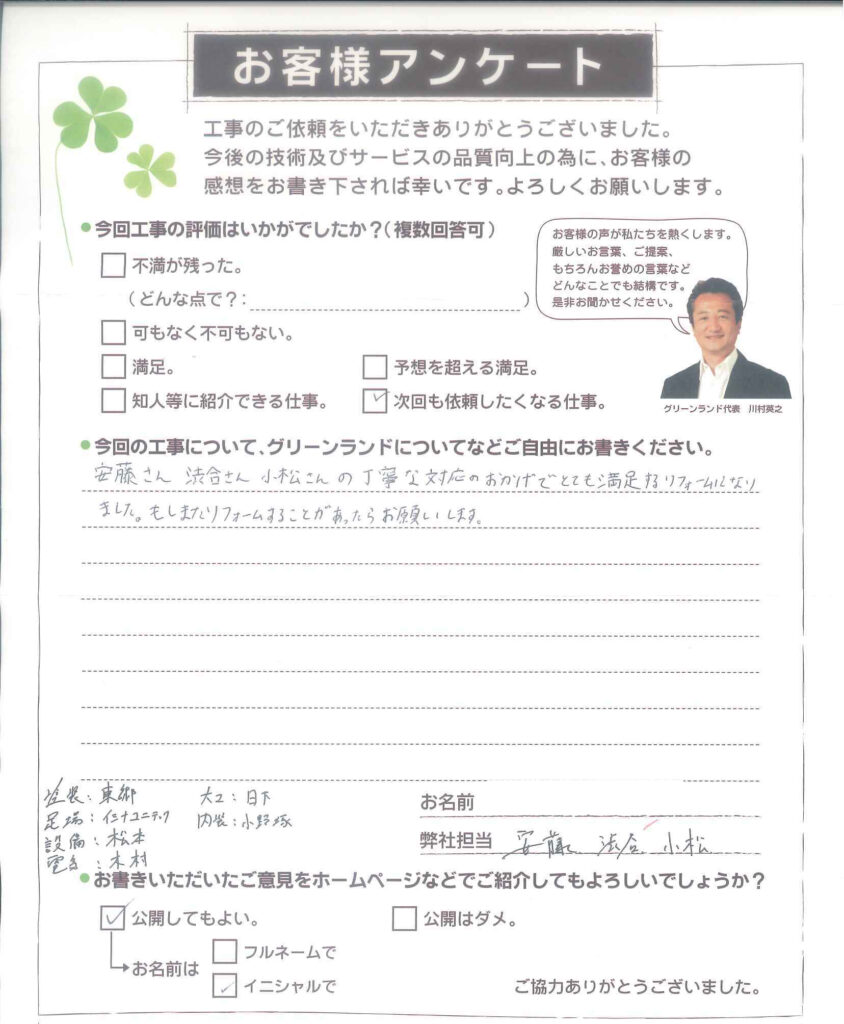 お客様アンケート
工事のご依頼をいただきありがとうございました。
今後の技術及びサービスの品質向上の為に、お客様の
感想をお書き下されば幸いです。よろしくお願いします。
今回工事の評価はいかがでしたか？（複数回答可）
不満が残った。
（どんな点で？：）
可もなく不可もない。
満足。
予想を超える満足。
知人等に紹介できる仕事。
次回も依頼したくなる仕事。
お客様の声が私たちを熱くします。
厳しいお言葉、ご提案、
もちろんお誉めの言葉など
どんなことでも結構です。
是非お聞かせください。
グリーンランド代表 川村英之
今回の工事について、グリーンランドについてなどご自由にお書きください。
安藤さん 渋合さん 小松さんの丁寧な対応のおかげでとても満足するリフォームになり
ました。もしまたリフォームすることがあったらお願いします。
塗装：東郷
足場：イナユニテック
設備：松本
電気：木村
大工：日下
内装：小野塚
お名前
弊社担当 安藤 渋合 小松
お書きいただいたご意見をホームページなどでご紹介してもよろしいでしょうか？
公開してもよい。
公開はダメ。
お名前は
フルネームで
イニシャルで
ご協力ありがとうございました。